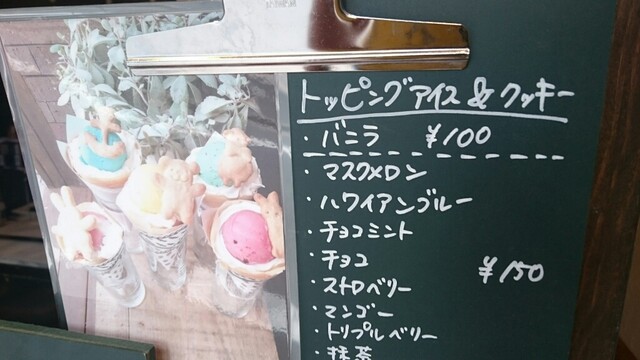 トッピングアイス & クッキー
・バニラ ¥100
・マスクメロン
・ハワイアンブルー
・チョコミント
・チョコ
¥150
・ストロベリー
・マンゴー
・トリプルベリー
・抹茶